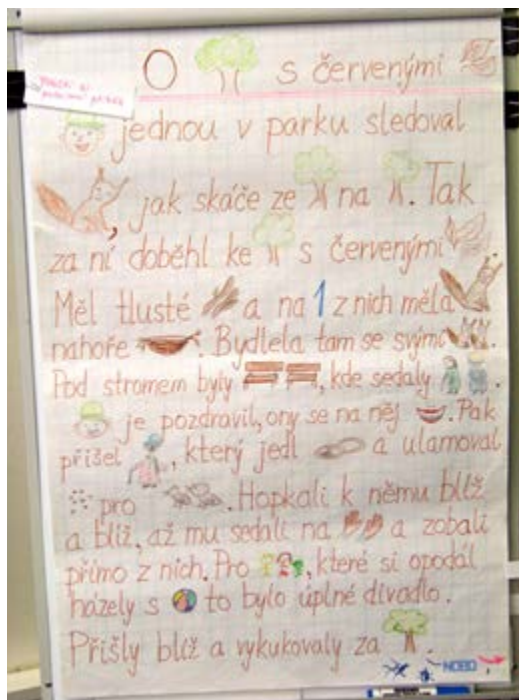 O s červenými
jednou v parku sledoval
, jak skáče ze na . Tak
za ní doběhl ke s červenými
Měl tlusté a na 1 z nich měla
nahoře . Bydlela tam se svými .
Pod stromem byly , kde sedaly .
je pozdravil, ony se na něj . Pak
přišel , který jedl a ulamoval
pro . Hopkali k němu blíž
a blíž, až mu sedali na a zobali
přímo z nich. Pro , které si opodál
házely s to bylo úplné divadlo.
Přišly blíž a vykukovaly za .
NOBO